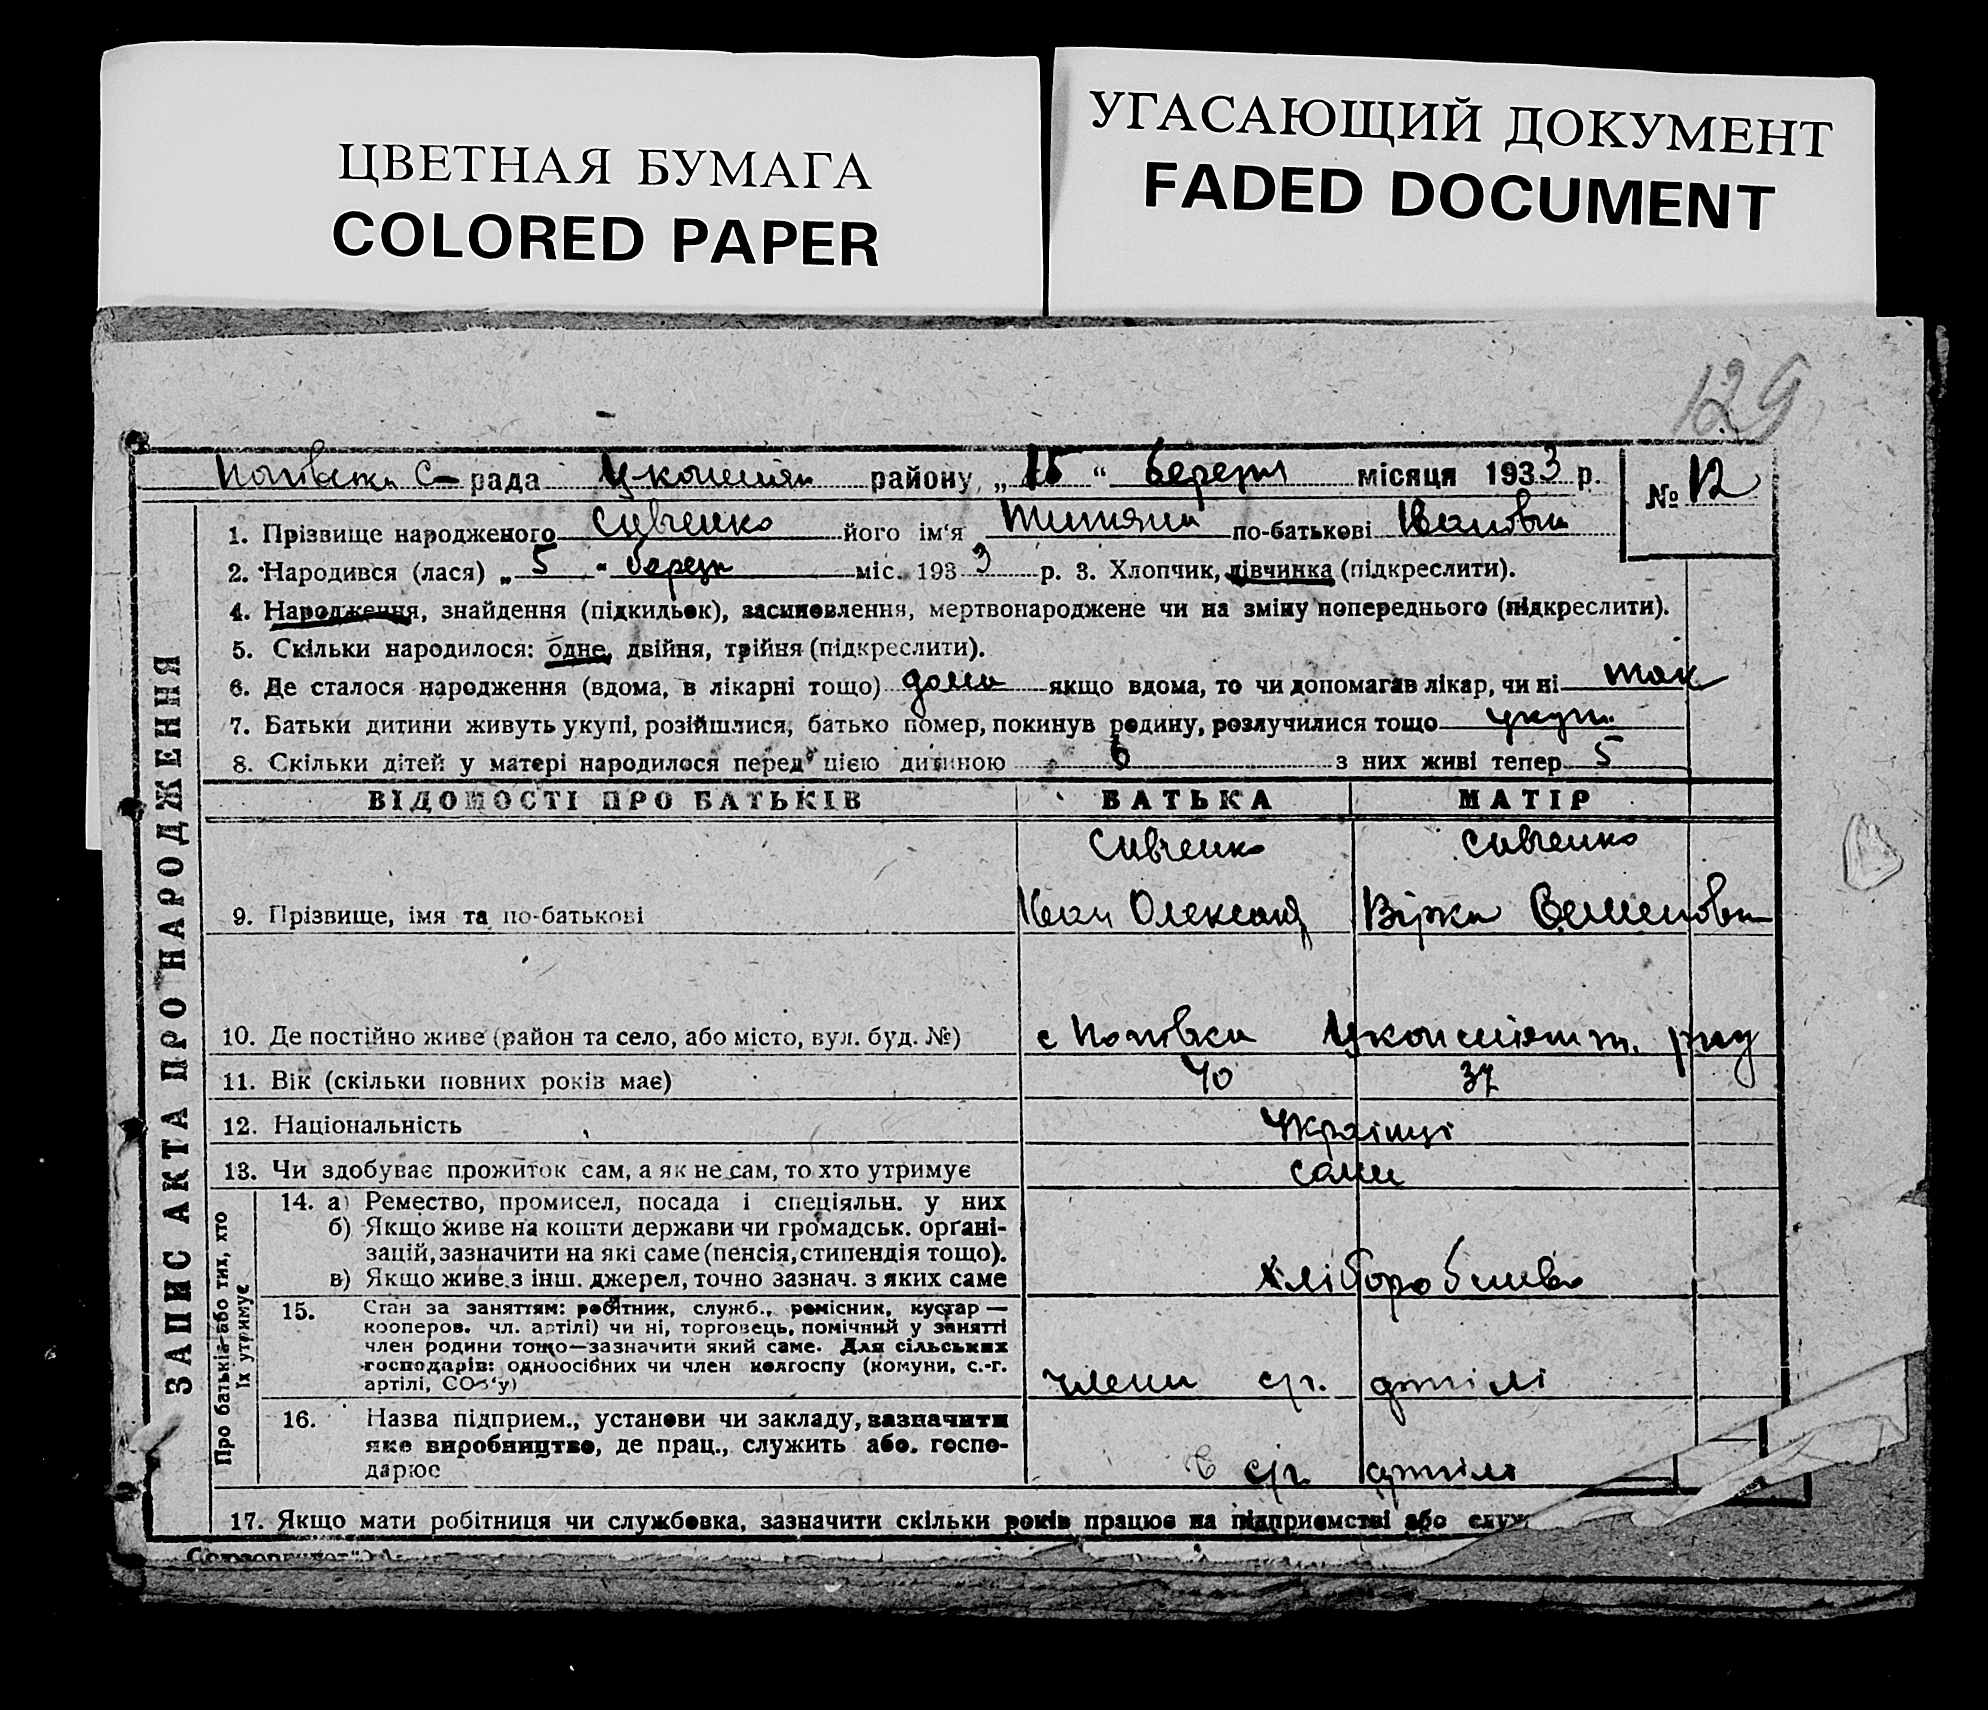 ЦВЕТНАЯ БУМАГА
COLORED PAPER
УГАСАЮЩИЙ ДОКУМЕНТ
FADED DOCUMENT
129
С- рада району „15“ березня місяця 1933 р.
№ 12
ЗАПИС АКТА ПРО НАРОДЖЕННЯ
1. Прізвище народженого Савченко його ім‘я Титяна по-батькові Івановна
2. Народився (лася) „5“ березн міс. 1933 р. 3. Хлопчик, дівчинка (підкреслити).
4. Народження, знайдення (підкидьок), засиновлення, мертвонароджене чи на зміну попереднього (підкреслити).
5. Скільки народилося: одне, двійня, трійня (підкреслити).
6. Де сталося народження (вдома, в лікарні тощо) дома якщо вдома, то чи допомагав лікар, чи ні так
7. Батьки дитини живуть укупі, розійшлися, батько помер, покинув родину, розлучилися тощо укупі
8. Скільки дітей у матері народилося перед цією дитиною 6 з них живі тепер 5
ВІДОМОСТІ ПРО БАТЬКІВ БАТЬКА МАТІР
Савченко Савченко
9. Прізвище, імя та по-батькові Іван Олександ Вірка Семеновна
10. Де постійно живе (район та село, або місто, вул. буд. №) с Попівка
11. Вік (скільки повних років має) 40 37
12. Національність Українці
13. Чи здобуває прожиток сам, а як не сам, то хто утримує сами
Про батьків або тих, хто
їх утримує
14. а) Ремество, промисел, посада і спеціяльн. у них
б) Якщо живе на кошти держави чи громадськ. орґані-
зацій, зазначити на які саме (пенсія, стипендія тощо).
в) Якщо живе з інш. джерел, точно зазнач. з яких саме хліборобство
15. Стан за заняттям: робітник, служб., ремісник, кустар —
кооперов. чл. артілі) чи ні, торговець, помічний у занятті
член родини тощо—зазначити який саме. Для сільських
господарів: одноосібних чи член колгоспу (комуни, с.-г.
артілі, СОЗ‘у) члени с/г. артілі
16. Назва підприєм., установи чи закладу, зазначити
яке виробництво, де прац., служить або. госпо-
дарює в с/г артілі
17. Якщо мати робітниця чи службовка, зазначити скільки років працює на підприємстві або служ